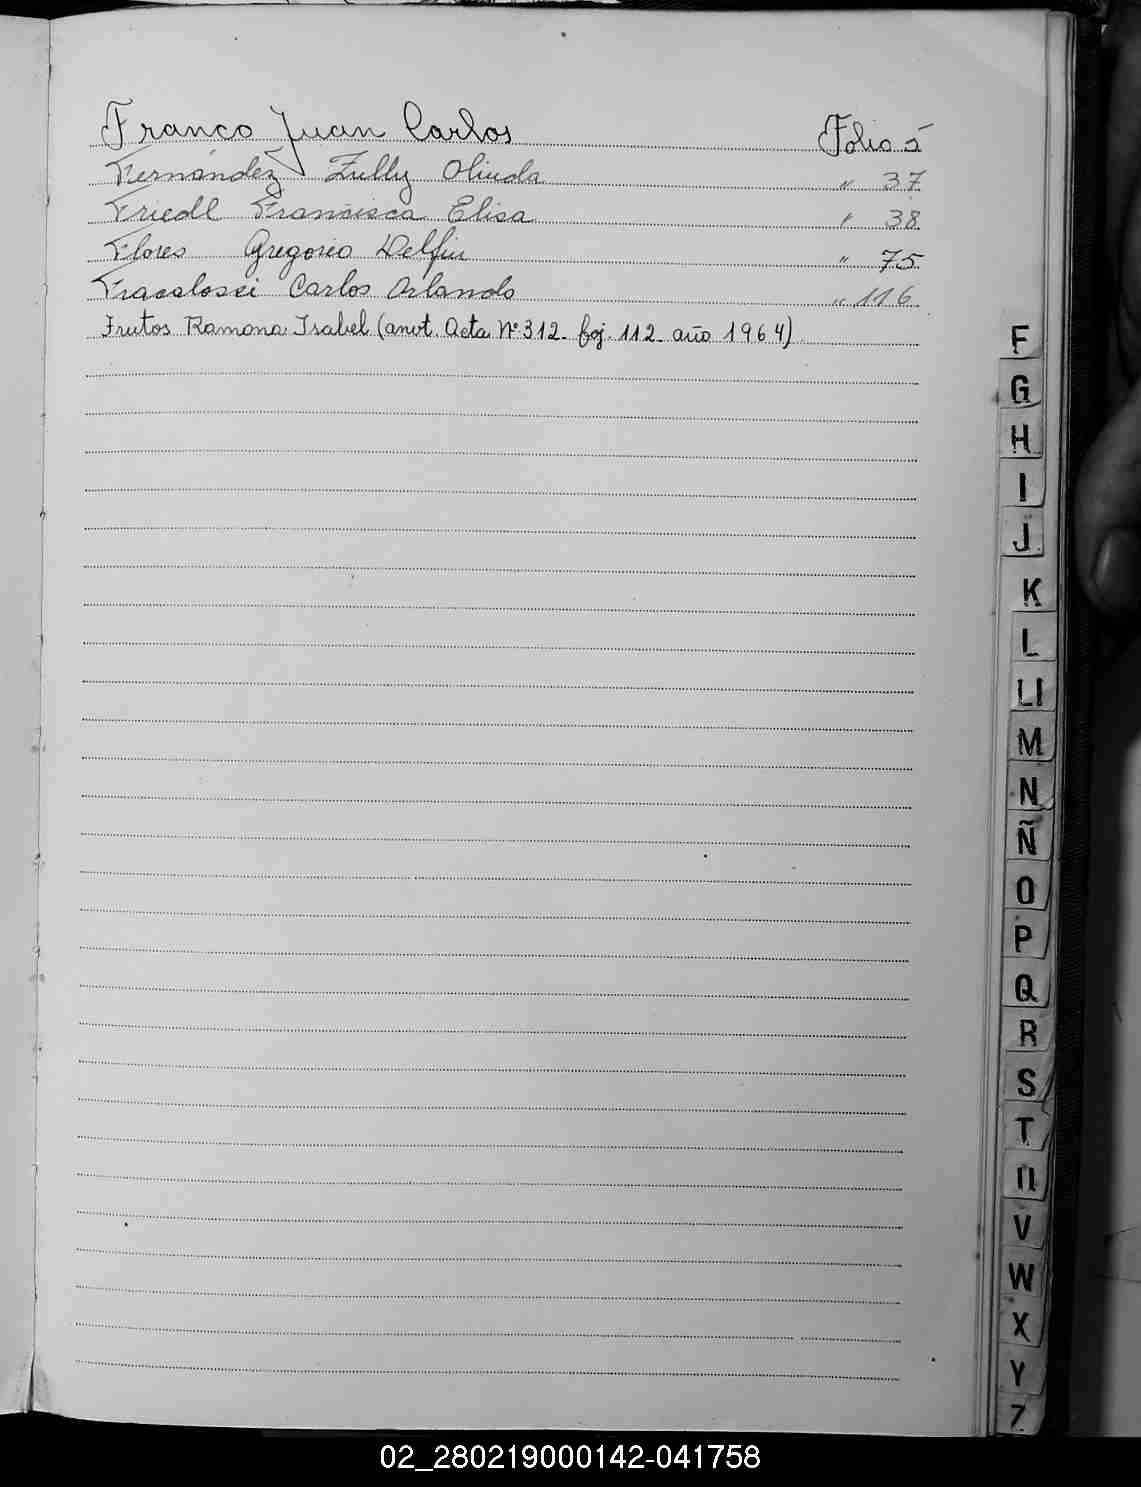 Franco Juan Carlos Folio 5
Fernández Zully Olinda " 37
Friedl Francisca Elisa " 38
Flores Gregorio Delfin " 75
Fracalossi Carlos Orlando " 116
Frutos Ramona Isabel (anot. Acta Nº 312 - foj. 112 - año 1964)
F
G
H
I
J
K
L
Ll
M
N
Ñ
O
P
Q
R
S
T
U
V
W
X
Y
Z
02_280219000142-041758